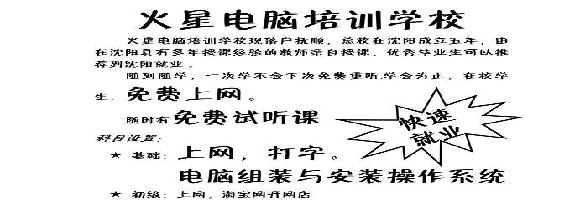 火星电脑培训学校
火星电脑培训学校现落户抚顺，总校在沈阳成立五年，由
在沈阳具有多年授课经验的教师亲自授课，优秀毕业生可以推
荐到沈阳就业。
随到随学，一次学不会下次免费重听学会为止，在校学
生，免费上网。
随时有免费试听课
快速
就业
科目设置：
★ 基础：上网，打字。
电脑组装与安装操作系统
★ 初级：上网，淘宝网开网店